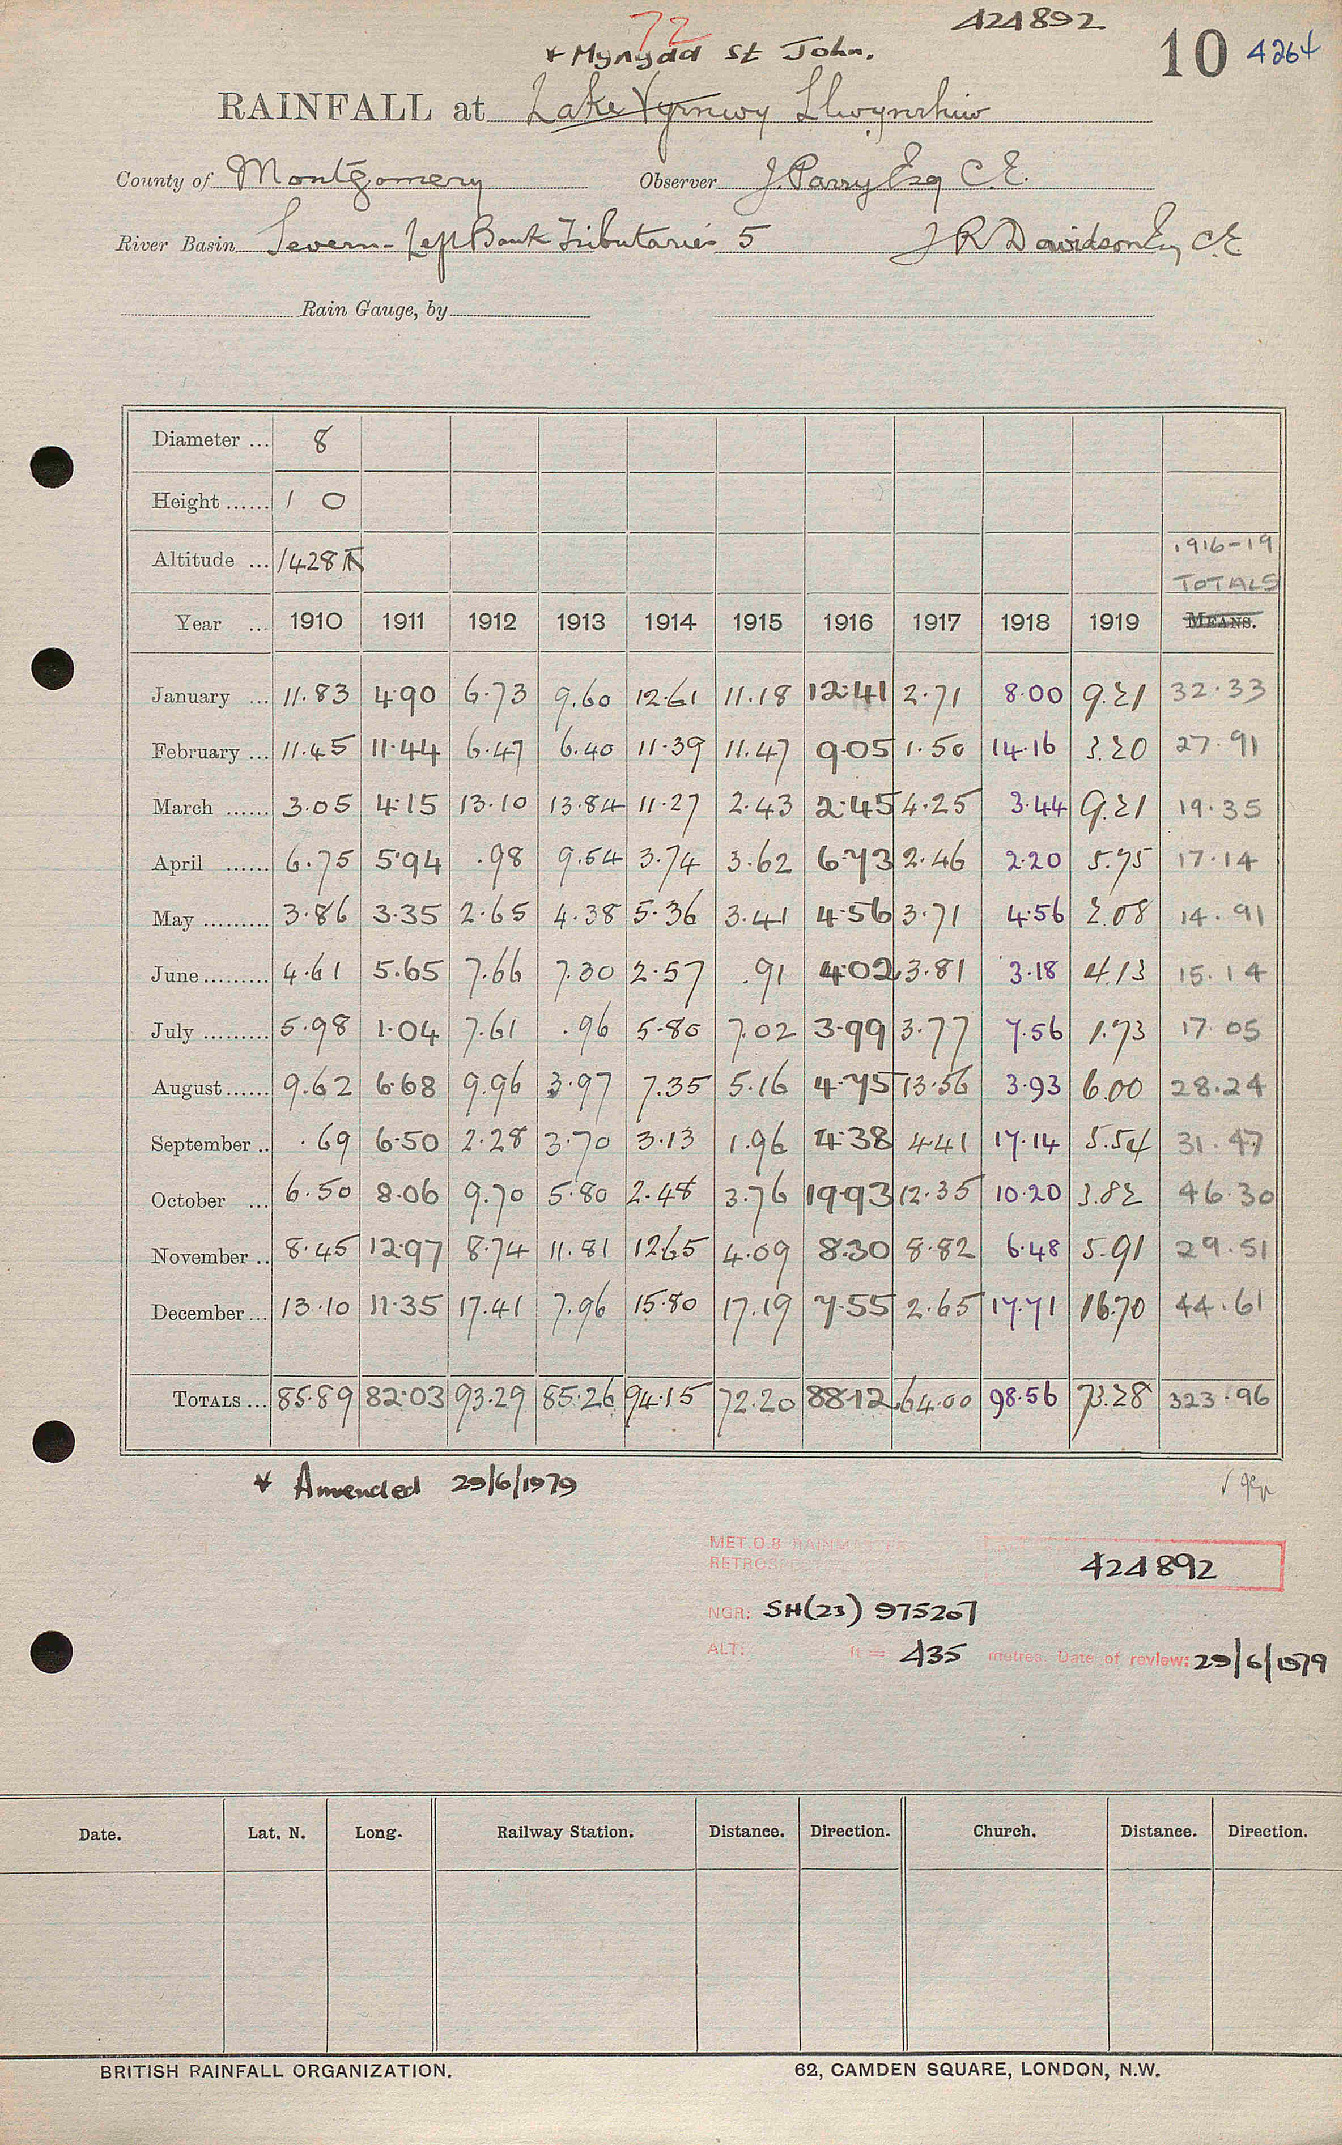 72
424892
* Mynydd St John.
10 4264
RAINFALL at Lake Vyrnwy Llwynrhiw
County of Montgomery Observer J. Parry Esq C.E.
River Basin Severn - Left Bank Tributaries 5 J R Davidson Esq C.E
Rain Gauge, by
Diameter ... 8
Height ...... 1 0
Altitude ... 1428 ft 1916-19 TOTALS
Year ... 1910 1911 1912 1913 1914 1915 1916 1917 1918 1919 MEANS.
January ... 11.83 4.90 6.73 9.60 12.61 11.18 12.41 2.71 8.00 9.21 32.33
February ... 11.45 11.44 6.47 6.40 11.39 11.47 9.05 1.50 14.16 3.20 27.91
March ...... 3.05 4.15 13.10 13.84 11.27 2.43 2.45 4.25 3.44 9.21 19.35
April ...... 6.75 5.94 .98 9.54 3.74 3.62 6.73 2.46 2.20 5.75 17.14
May ......... 3.86 3.35 2.65 4.38 5.36 3.41 4.56 3.71 4.56 2.08 14.91
June ......... 4.61 5.65 7.66 7.30 2.57 .91 4.02 3.81 3.18 4.13 15.14
July ......... 5.98 1.04 7.61 .96 5.80 7.02 3.99 3.77 7.56 1.73 17.05
August ...... 9.62 6.68 9.96 3.97 7.35 5.16 4.75 13.56 3.93 6.00 28.24
September .. .69 6.50 2.28 3.70 3.13 1.96 4.38 4.41 17.14 5.54 31.47
October ... 6.50 8.06 9.70 5.80 2.48 3.76 19.93 12.35 10.20 3.82 46.30
November .. 8.45 12.97 8.74 11.81 12.65 4.09 8.30 8.82 6.48 5.91 29.51
December ... 13.10 11.35 17.41 7.96 15.80 17.19 7.55 2.65 17.71 16.70 44.61
TOTALS ... 85.89 82.03 93.29 85.26 94.15 72.20 88.12 64.00 98.56 73.28 323.96
* Amended 29/6/1979
MET.O.8 RAINMASTER
RETROSP
424892
NGR: SH(23) 975207
ALT: ft = 435 metres. Date of review: 29/6/1979
Date. Lat. N. Long. Railway Station. Distance. Direction. Church. Distance. Direction.
BRITISH RAINFALL ORGANIZATION. 62, CAMDEN SQUARE, LONDON, N.W.